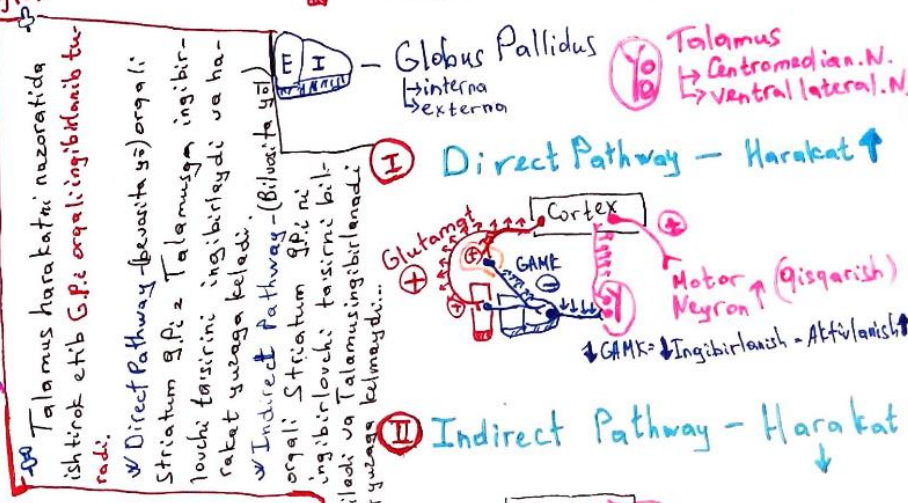 Talamus harakatni nazoratida
ishtirok etib G.P.i orqali ingibirlanib tu-
radi.
Direct Pathway - (bevosita yo) orqali
Striatum g.P.i 2 Talamusga ingibir-
lovchi ta'sirini ingibirlaydi va ha-
rakat yuzaga keladi.
Indirect Pathway - (Bilvosita yo)
orqali Striatum g.P.i ni
ingibirlovchi tasirni bil-
iladi va Talamus ingibirlanadi
yuzaga kelmaydi...
E I
Globus Pallidus
interna
externa
Talamus
Centromedian.N.
Ventral lateral.N.
I Direct Pathway - Harakat ↑
Cortex
Glutamat
+
+
+
GAMK
-
+
Motor
Neyron ↑ (Qisqarish)
↓GAMK=↓Ingibirlanish - Aktivlanish↑
II Indirect Pathway - Harakat
↓